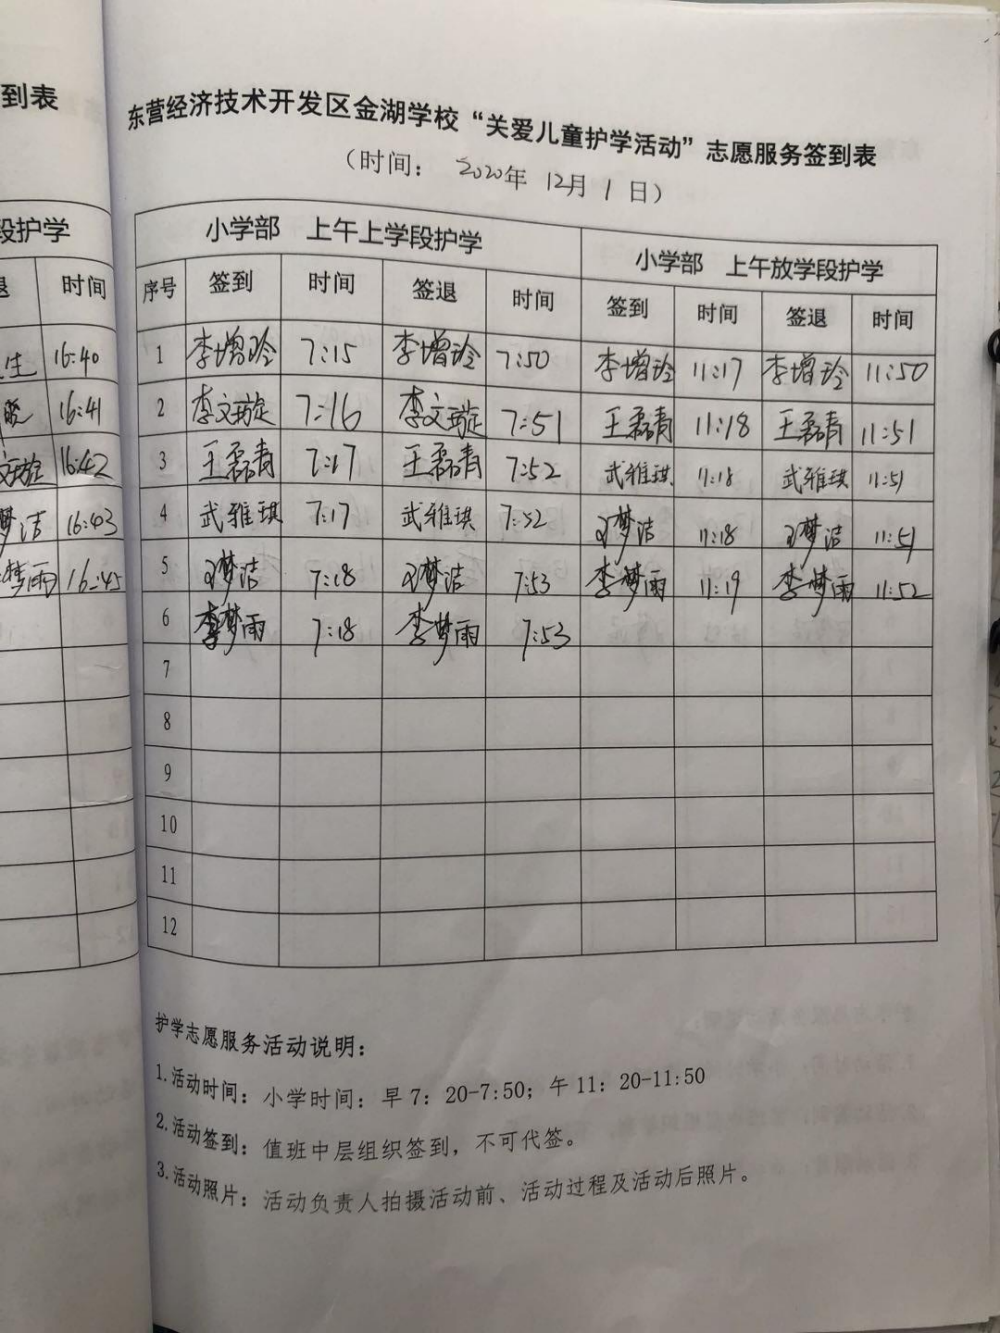 到表
段护学
时间
生 16:40
16:41
16:42
梦洁 16:43
梦雨 16:45
东营经济技术开发区金湖学校“关爱儿童护学活动”志愿服务签到表
（时间： 2020年 12月 1 日）
小学部 上午上学段护学 小学部 上午放学段护学
序号 签到 时间 签退 时间 签到 时间 签退 时间
1 李增玲 7:15 李增玲 7:50 李增玲 11:17 李增玲 11:50
2 李文璇 7:16 李文璇 7:51 王磊青 11:18 王磊青 11:51
3 王磊青 7:17 王磊青 7:52 武雅琪 11:18 武雅琪 11:51
4 武雅琪 7:17 武雅琪 7:52 梦洁 11:18 梦洁 11:51
5 梦洁 7:18 梦洁 7:53 李梦雨 11:19 李梦雨 11:52
6 李梦雨 7:18 李梦雨 7:53
7
8
9
10
11
12
护学志愿服务活动说明：
1.活动时间：小学时间：早7：20-7:50；午11：20-11:50
2.活动签到：值班中层组织签到，不可代签。
3.活动照片：活动负责人拍摄活动前、活动过程及活动后照片。